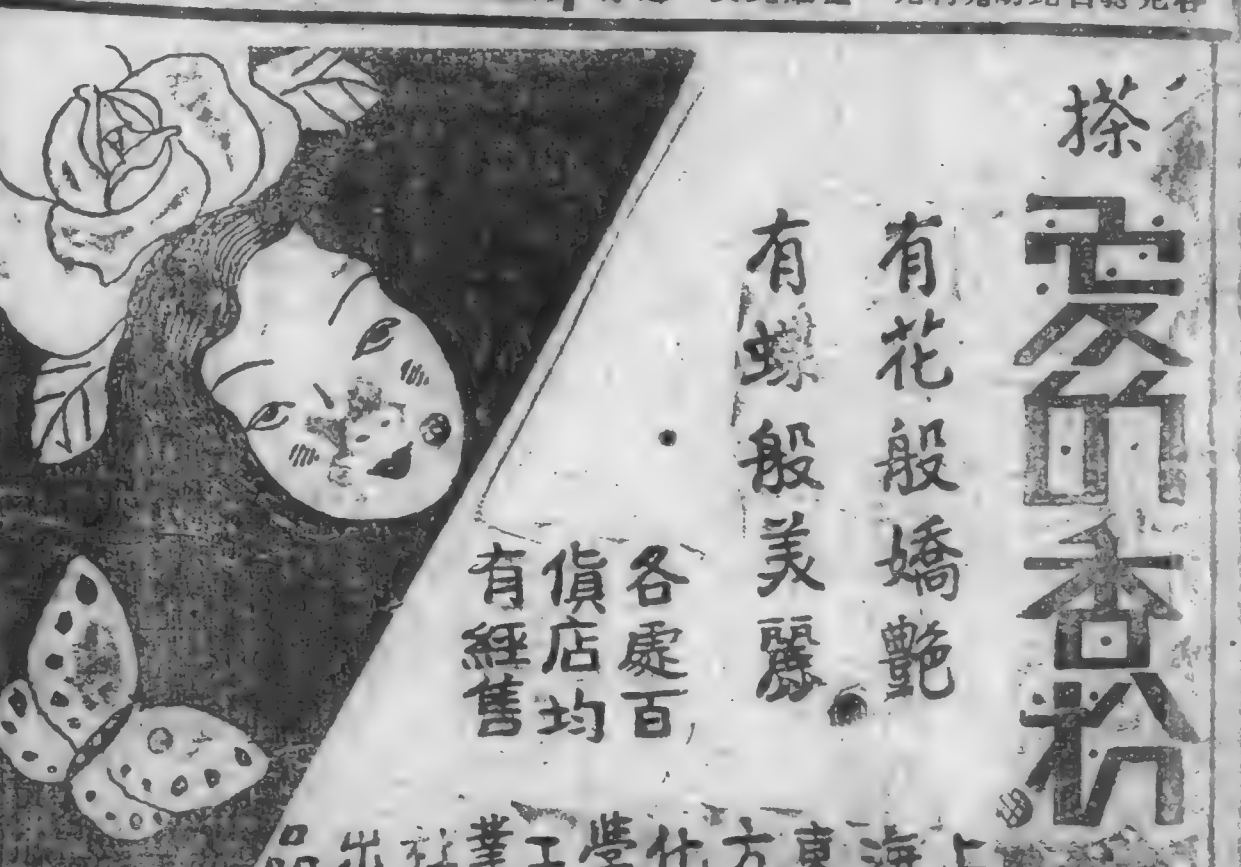 搽
香粉
有花般嬌艷
有蝶般美麗
各處百
貨店均
有經售
上海東方化學工業社出品